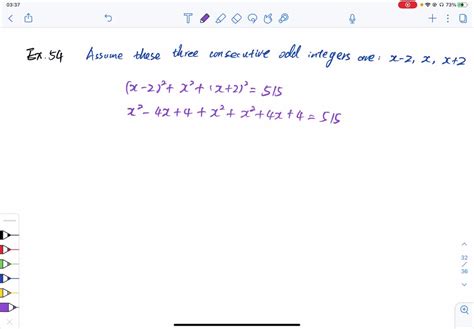 03:37
73%
Ex.54 Assume these three consecutive odd integers are: x-2, x, x+2
(x-2)²+ x²+(x+2)²=515
x²-4x+4+x²+x²+4x+4=515
32
/
36